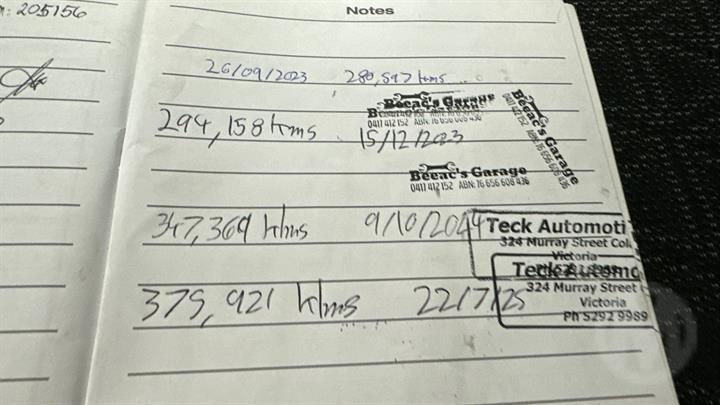 : 205156
Notes
26/09/2023 280,597 kms
Beeac's Garage
0417 412 152 ABN: 76 656 608 436
Beeac's Garage
0417 412 152 ABN: 76 656 608 436
294,158 kms 15/12/2023
Beeac's Garage
0417 412 152 ABN: 76 656 608 436
347,369 klms 9/10/2024
Teck Automoti
324 Murray Street Col
Victoria
379,921 klms 22/7/25
Teck Automo
324 Murray Street
Victoria
Ph 5292 9989